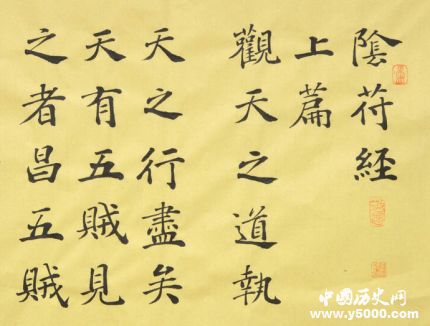 陰符経
上篇
觀天之道執
天之行盡矣
天有五賊見
之者昌五賊
中国历史网
www.y5000.com